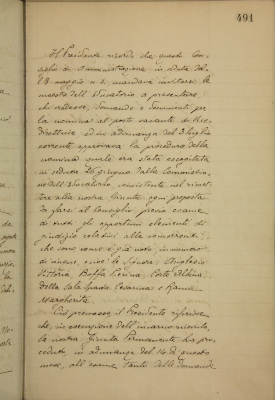 491
Il Presidente ricorda che questo Con-
siglio di Amministrazione in seduta del
13 maggio u. s. mandava invitarsi le
maestre dell'Educatorio a presentare,
ove credessero, domanda e documenti per
la nomina al posto vacante di Vice
Direttrice ed in adunanza del 3 luglio
corrente approvava la procedura della
nomina quale era stata escogitata
in seduta 26 giugno dalla Commissio-
ne dell'Educatorio, consistente nel rimet-
tere alla nostra Giunta ogni proposta
da farsi al Consiglio previo esame
di tutti gli opportuni elementi di
giudizio relativi alle concorrenti
che sono come è già noto in numero
di cinque, cioè le Signore:
Vittoria, Boffa Corina, Conte Albina,
Della Sala Spada Cesarina e Ramò
Margherita.
Ciò premesso, il Presidente riferisce
che, in esecuzione dell'incarico ricevuto,
la nostra Giunta Permanente ha pro-
ceduto, in adunanza del 16 di questo
mese, all'esame tanto delle domande